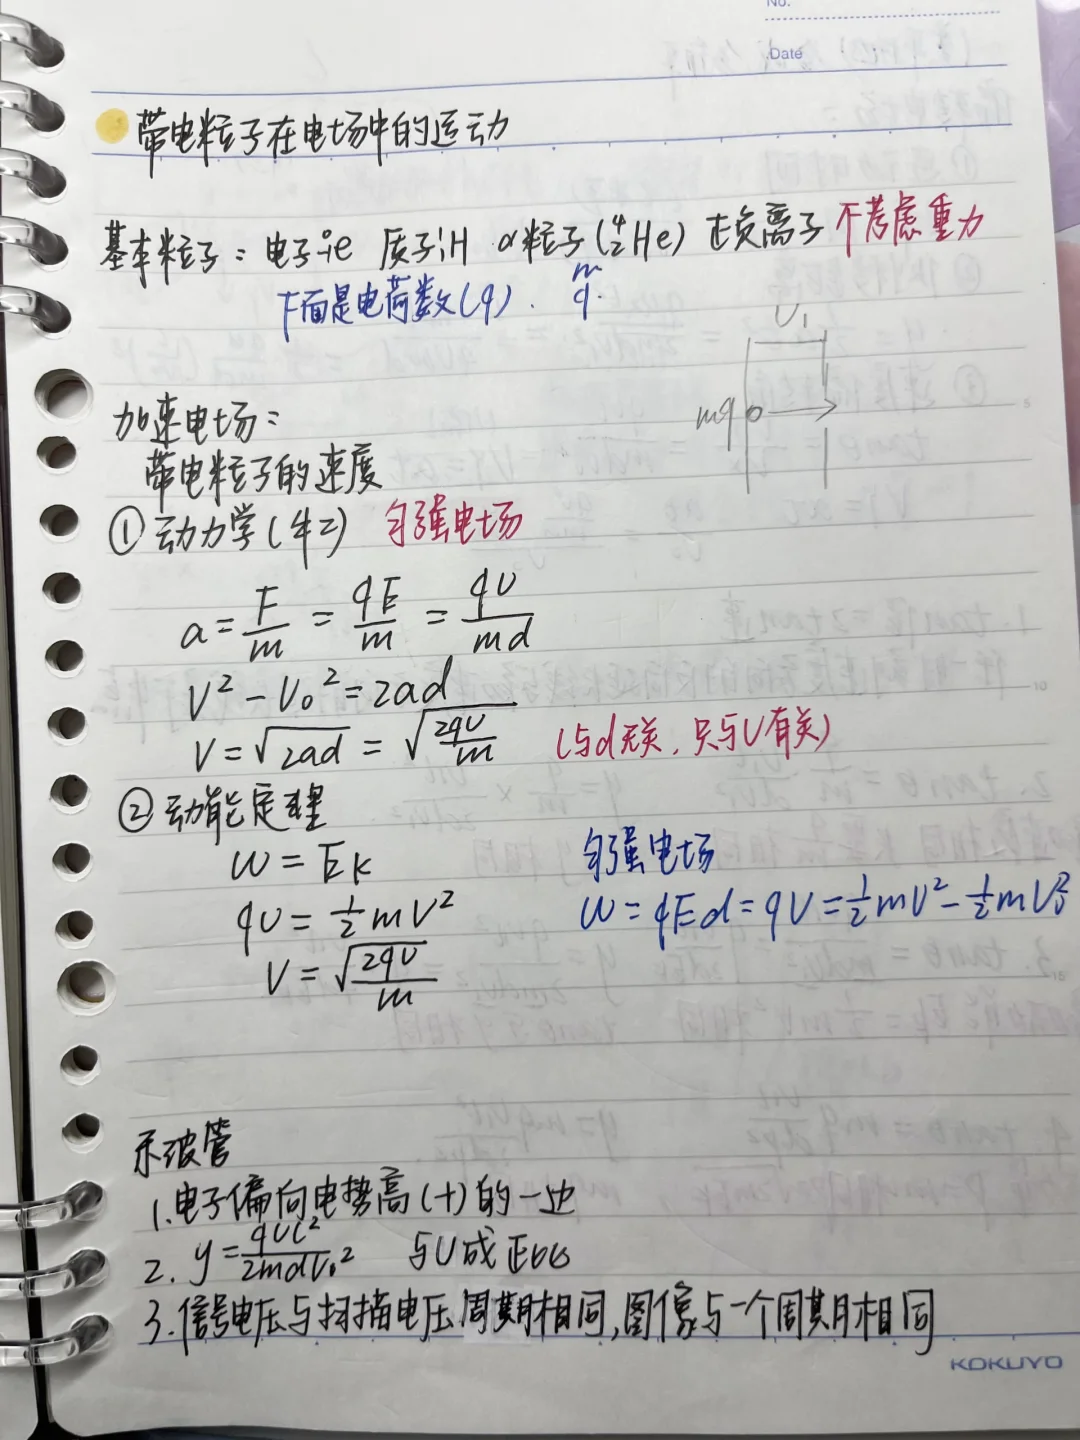 No.
Date
带电粒子在电场中的运动
基本粒子: 电子 ⁰₋₁e 质子 ¹₁H α粒子(⁴₂He) 正负离子 不考虑重力
下面是电荷数(q). m
q.
U₁
mq
加速电场:
带电粒子的速度
① 动力学(牛二) 匀强电场
a = F/m = qE/m = qU/md
V² - V₀² = 2ad
V = √2ad = √(2qU/m) (与d无关, 只与U有关)
② 动能定理
W = Ek 匀强电场
qU = ½mV² W = qEd = qU = ½mV² - ½mV₀²
V = √(2qU/m)
示波管
1. 电子偏向电势高(+)的一边
2. y = qUl²/2mdV₀² 与U成正比
3. 信号电压与扫描电压周期相同, 图像与一个周期相同
KOKUYO